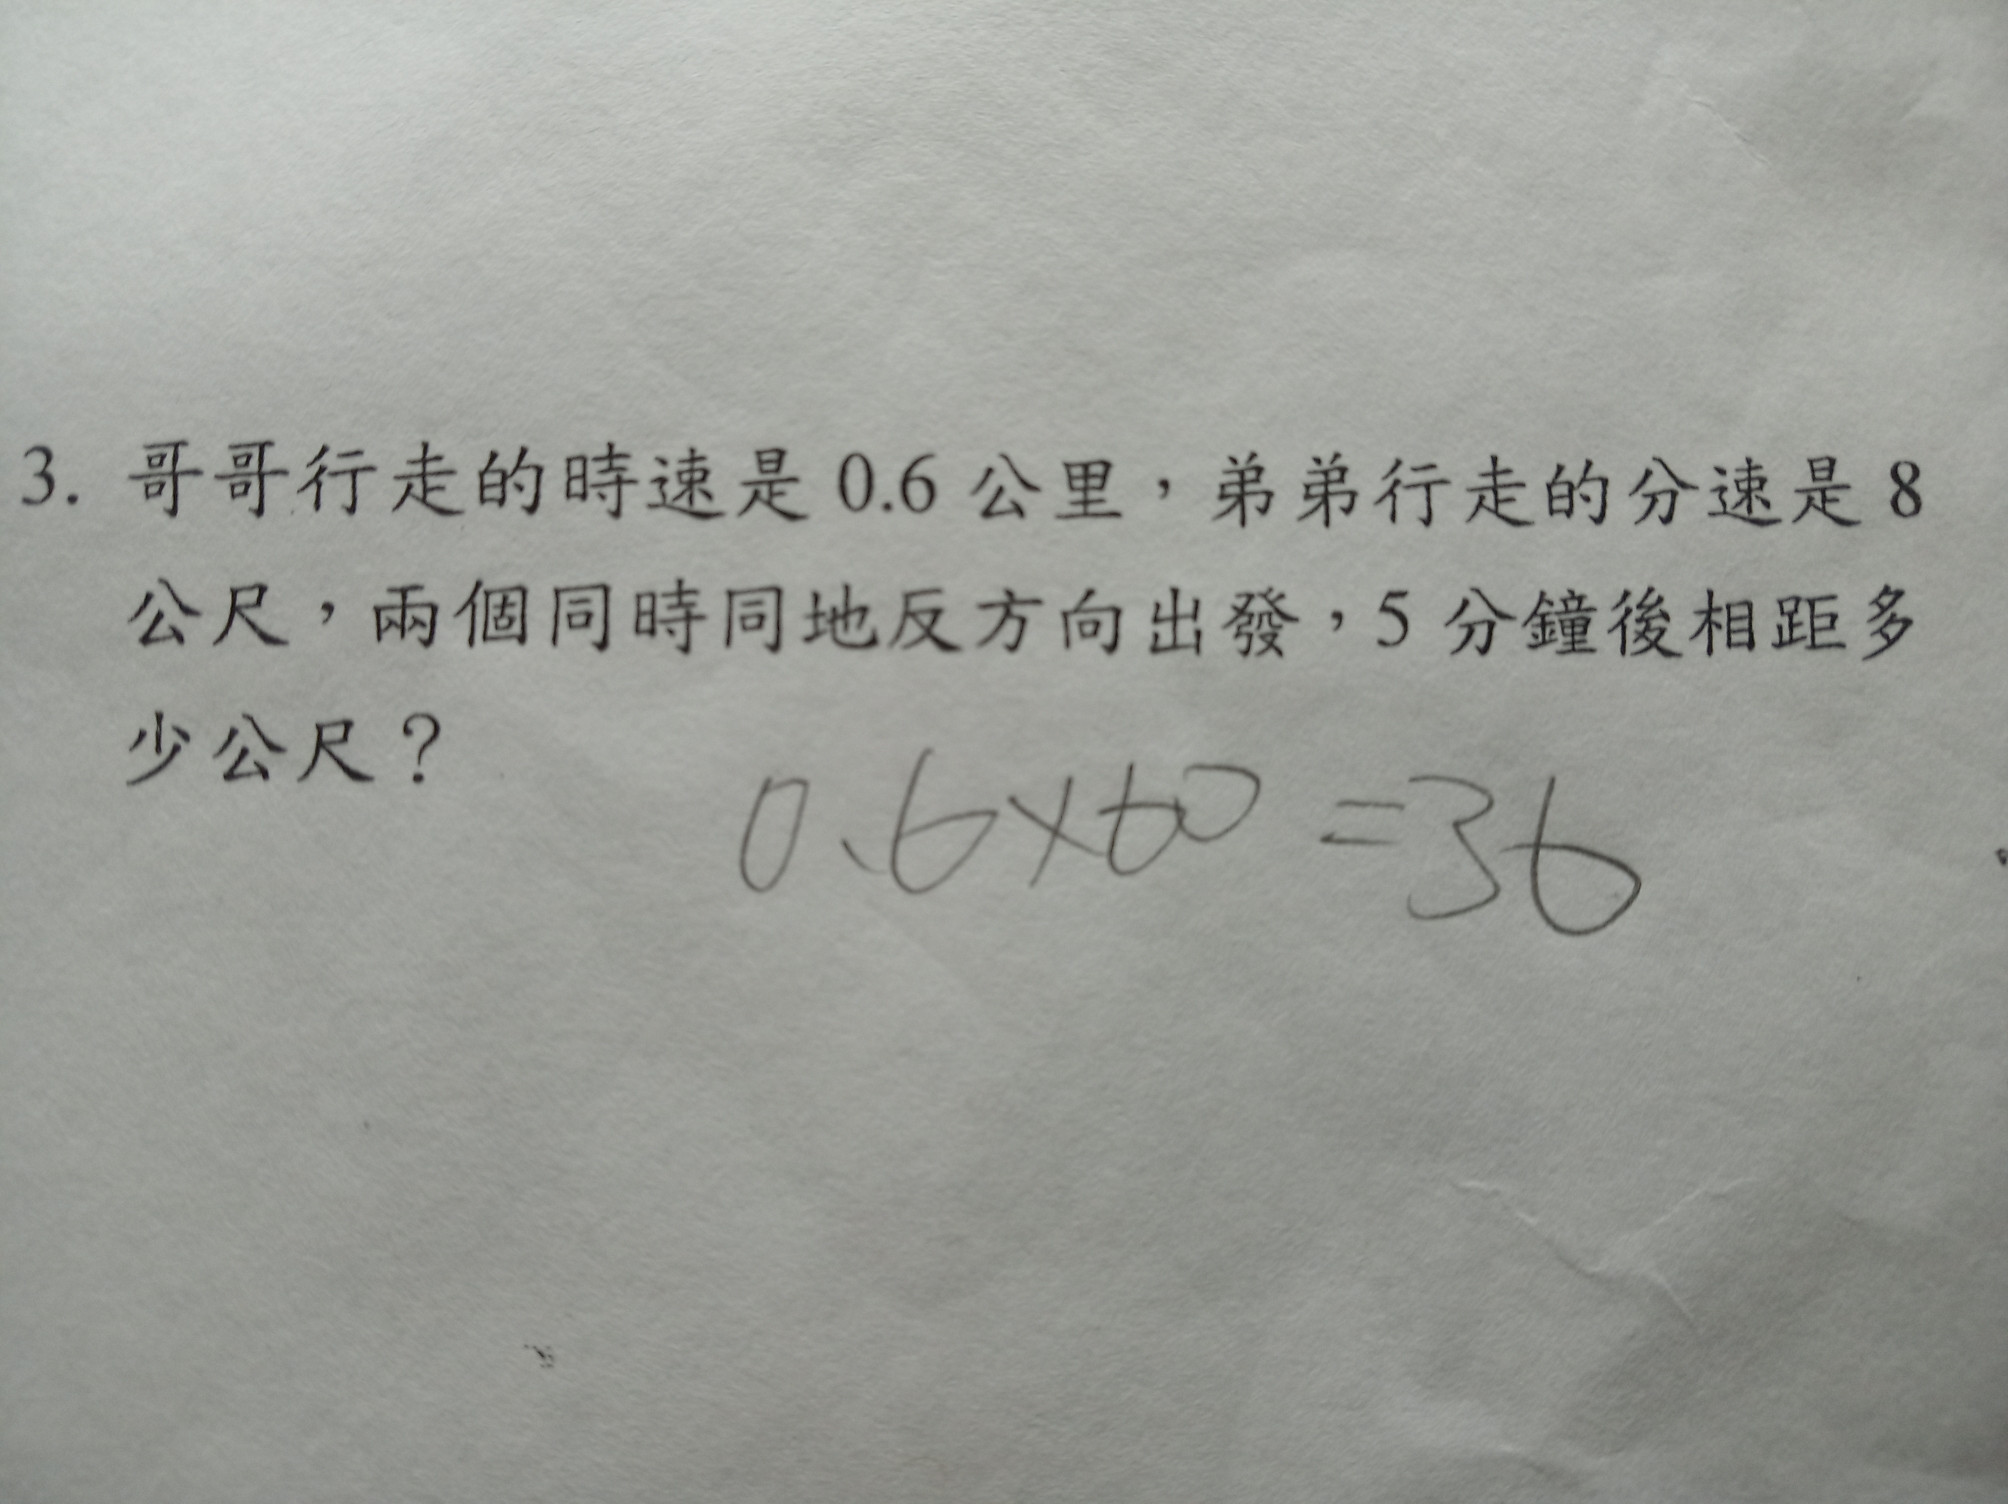 3. 哥哥行走的時速是 0.6 公里，弟弟行走的分速是 8
公尺，兩個同時同地反方向出發，5 分鐘後相距多
少公尺？
0.6×60=36